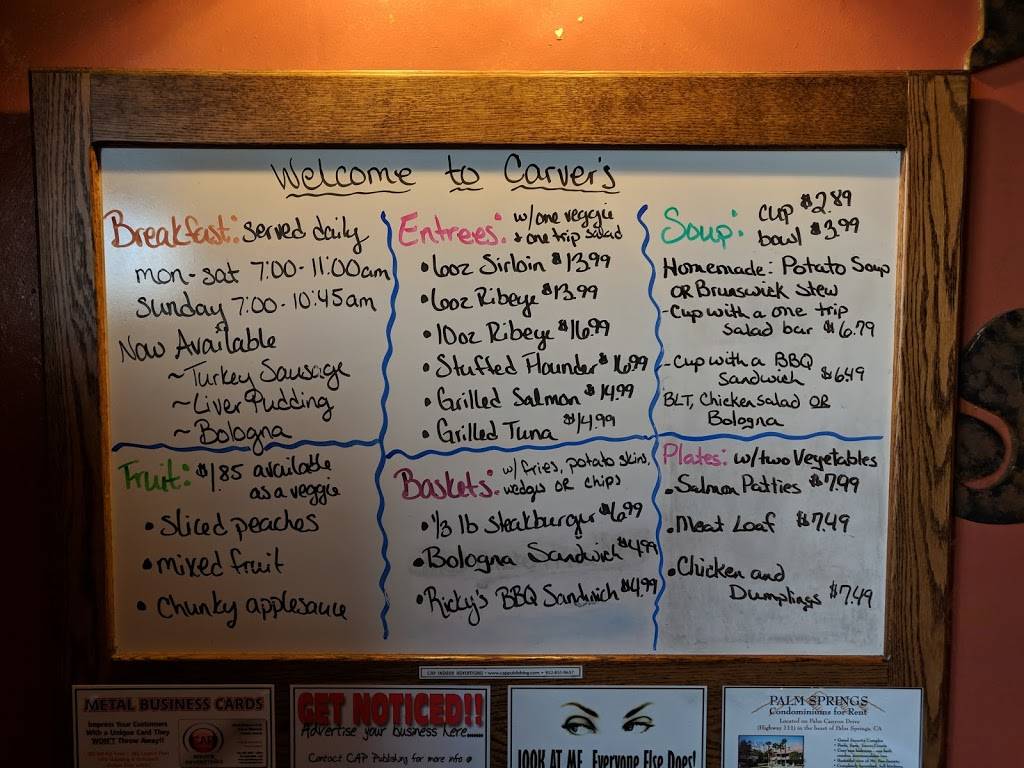 Welcome to Carver's
Breakfast: served daily
mon-sat 7:00-11:00am
Sunday 7:00-10:45am
Now Available
~Turkey Sausage
~Liver Pudding
~Bologna
Entrees: w/one veggie
+ one trip salad
•6oz Sirloin $13.99
•6oz Ribeye $13.99
•10oz Ribeye $16.99
•Stuffed Flounder $16.99
•Grilled Salmon $14.99
•Grilled Tuna $14.99
Soup: cup $2.89
bowl $3.99
Homemade: Potato Soup
OR Brunswick Stew
-Cup with a one trip
salad bar $6.79
-Cup with a BBQ
Sandwich $6.49
BLT, Chicken salad OR
Bologna
Fruit: $1.85 available
as a veggie
•Sliced peaches
•mixed fruit
•Chunky applesauce
Baskets: w/fries, potato skins,
wedges OR chips
•1/3 lb Steakburger $6.99
•Bologna Sandwich $4.99
•Ricky's BBQ Sandwich $4.99
Plates: w/two Vegetables
•Salmon Patties $7.99
•Meat Loaf $7.49
•Chicken and
Dumplings $7.49
METAL BUSINESS CARDS
Impress Your Customers
With a Unique Card They
WON'T Throw Away!!
CAP
GET NOTICED!!
Advertise your Business Here......
Contact CAP Publishing for more info @
LOOK AT ME, Everyone Else Does!
PALM SPRINGS
Condominiums for Rent
Located on Palm Canyon Drive
(Highway 111) in the heart of Palm Springs, CA